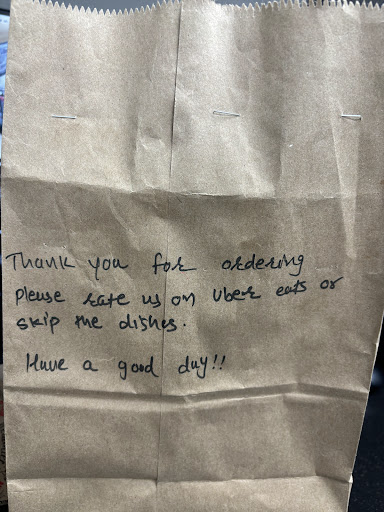 Thank you for ordering
please rate us on Uber eats or
skip the dishes.
Have a good day!!